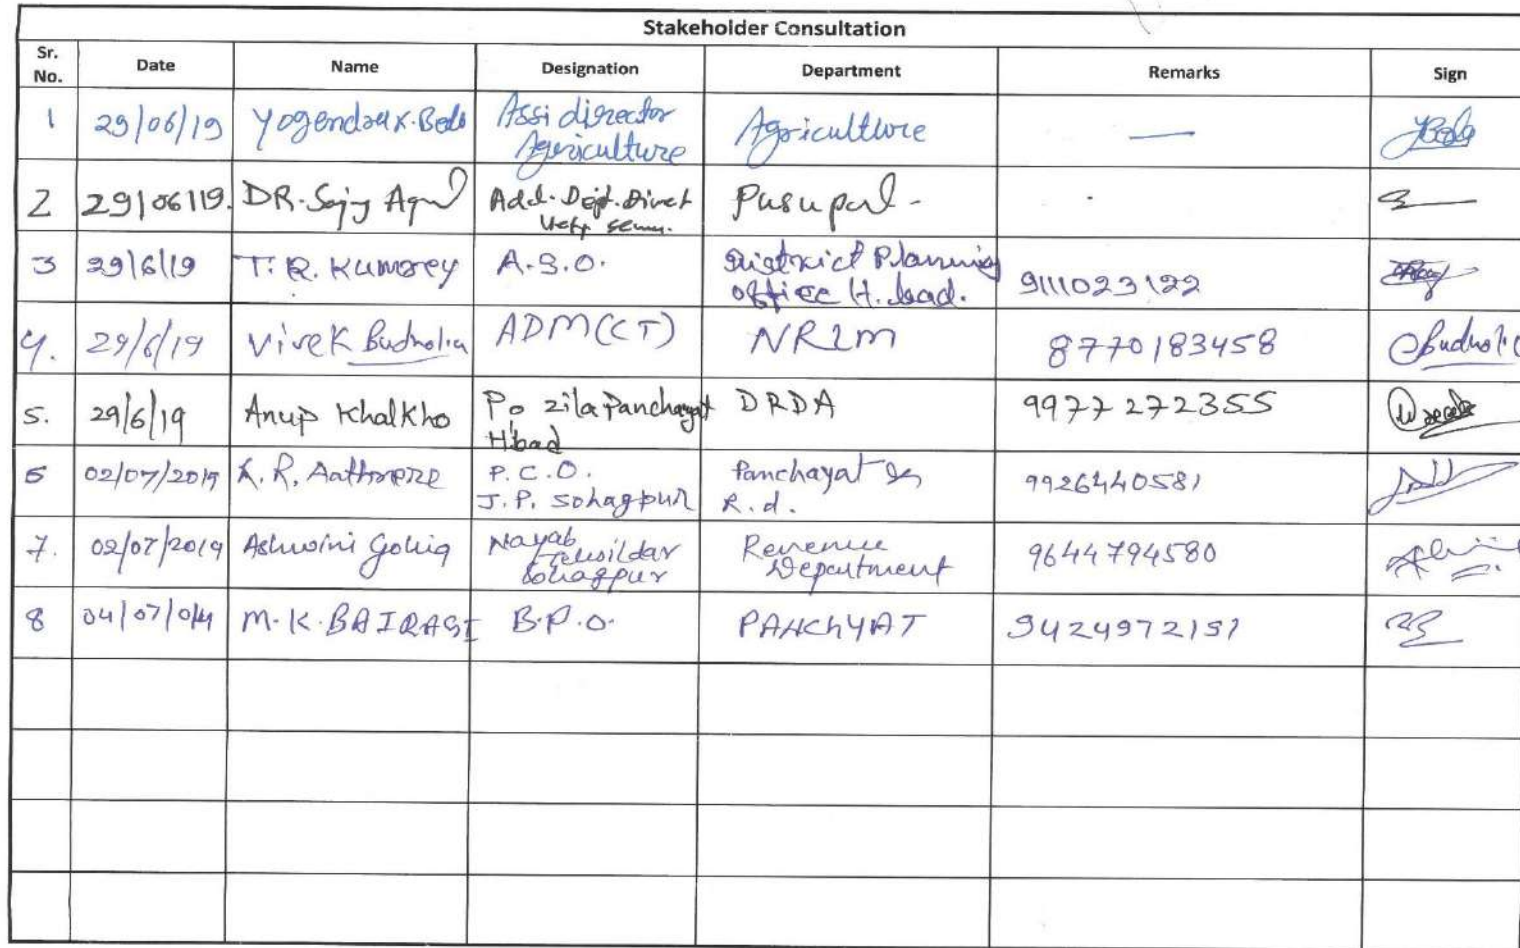 Stakeholder Consultation
Sr. No. Date Name Designation Department Remarks Sign
1 29/06/19 Yogendra K. Assi director Agriculture Agriculture —
2 29/06/19. DR. Add. Dept. Pasupal -
3 29/6/19 T. R. Kumrey A.S.O. District Planning office H. bad. 9111023122
4. 29/6/19 Vivek Budholia ADM(CT) NRLM 8770183458 Budholia
5. 29/6/19 Anup Khalkho Po zila Panchayat H'bad DRDA 9977272355
6 02/07/2019 K. R. P.C.O. J.P. Sohagpur Panchayat R.d. 9926440581
7. 02/07/2019 Ashwini Nayab Tehsildar Sohagpur Revenue Department 9644794580
8 04/07/ M.K. BAIRAGI B.P.O. PANCHYAT 9424972151